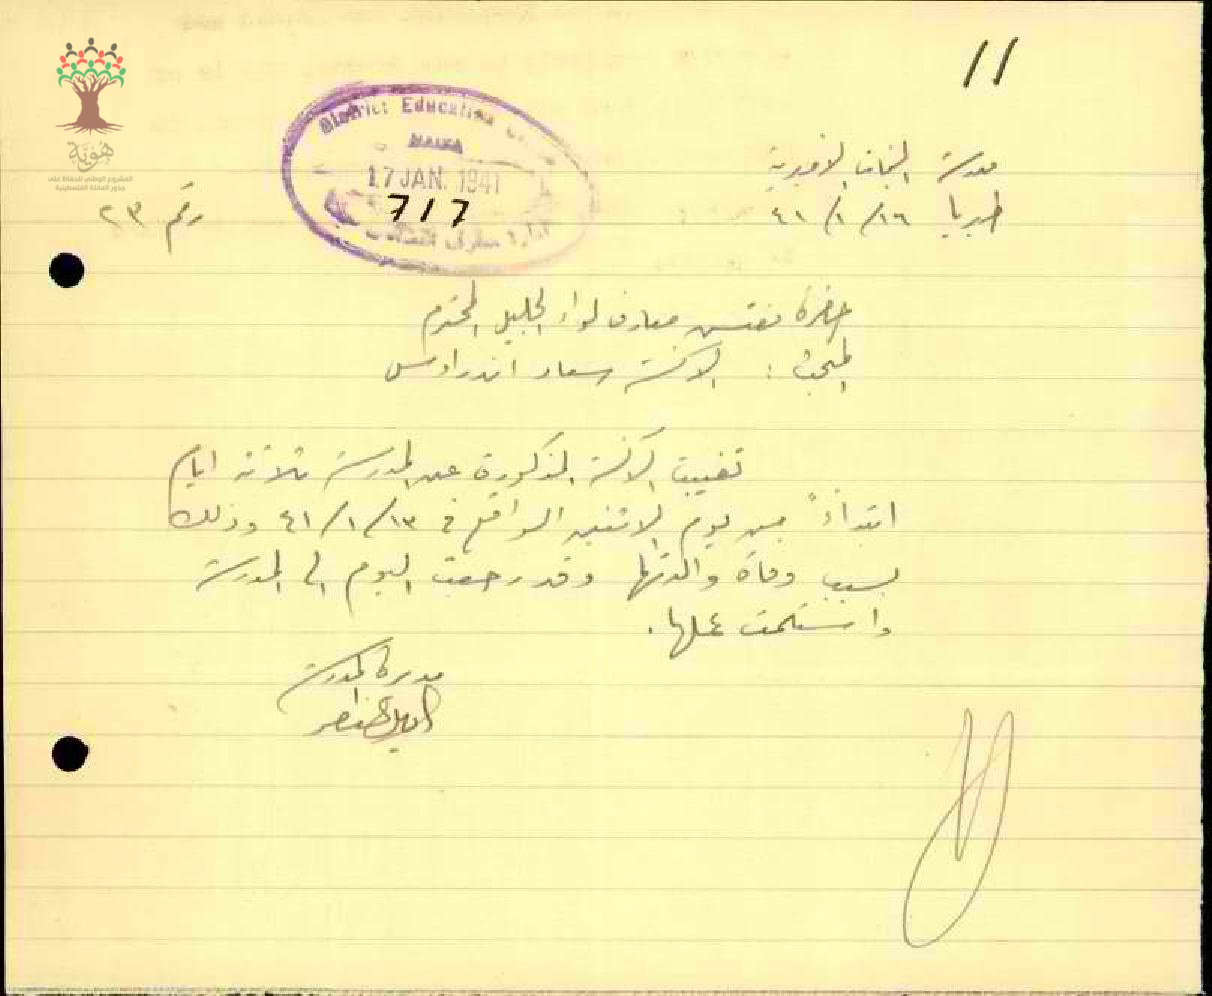 11
مدرسة البنات الاميرية
طبريا ١٦/١/٤١
رقم ٢٣
District Education
HAIFA
17 JAN. 1941
717
ادارة معارف
هوية
المشروع الوطني للحفاظ على
جذور العائلة الفلسطينية
حضرة مفتش معارف لواء الجليل المحترم
المبحث : الآنسة سعاد اندراوس
تغيبت الآنسة المذكورة عن المدرسة ثلاثة ايام
ابتداءً من يوم الاثنين الواقع في ١٣/١/٤١ وذلك
بسبب وفاة والدتها وقد رجعت اليوم الى المدرسة
واستلمت عملها.
مديرة المدرسة